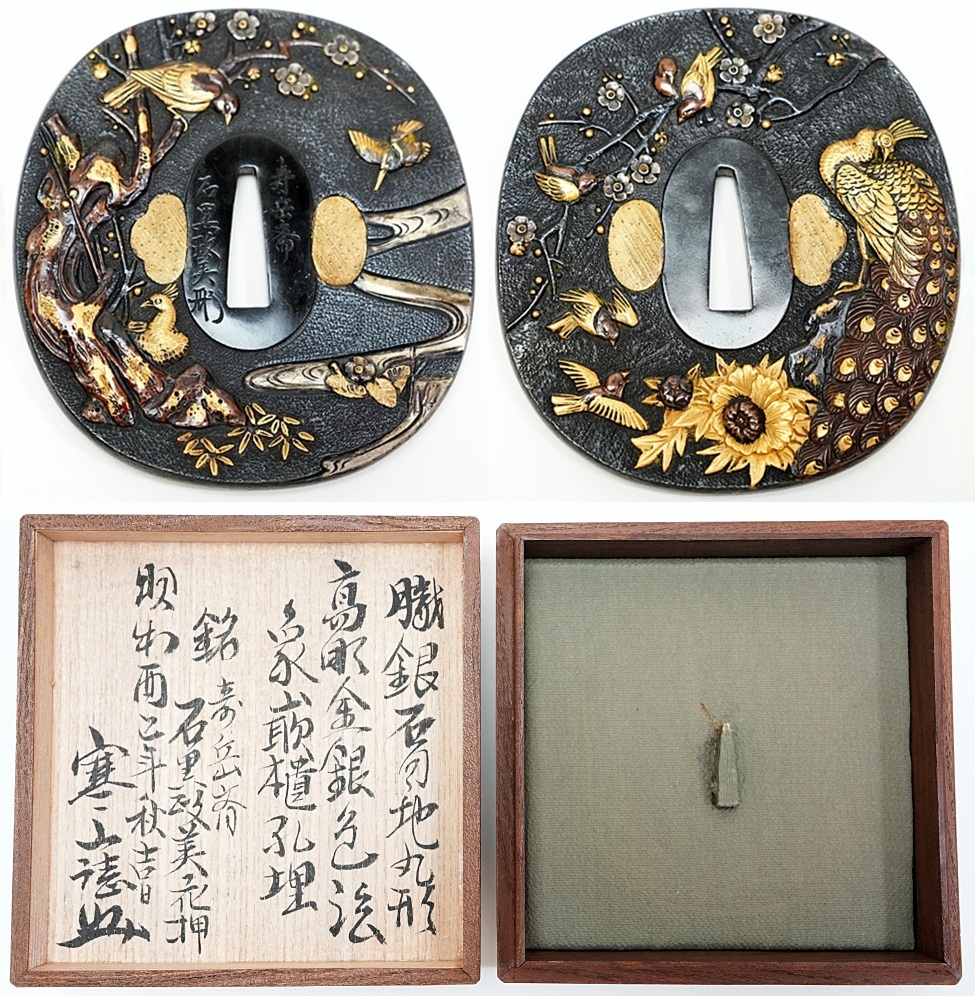 寿岳斎
石黒政美
朧銀石目地丸形
高彫金銀色絵
象嵌櫃孔埋
銘 寿岳斎
石黒政美花押
昭和酉己年秋吉日
寒山誌